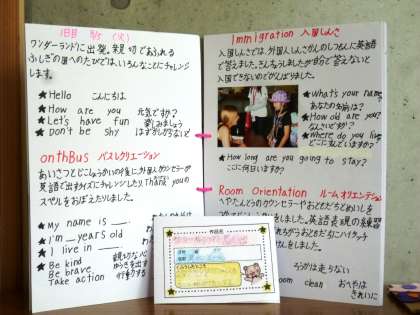 1日目 5/5 (火)
ワンダーランドに出発。親切であふれる
ふしぎの国へのたびでは、いろんなことにチャレンジ
します。
★Hello こんにちは
★How are you 元気ですか?
★Let's have fun 楽しみましょう
★Don't be shy はずかしがらないで
onthBus バスレクリエーション
あいさつとじこしょうかいの後に外国人カウンセラーが
英語で出すクイズにチャレンジしたり、Thank youの
スペルをおぼえたりしました。
★My name is ___.
★I'm ___years old
★I live in ___.
★Be kind
Be brave
Take action
Immigration 入国しんさ
入国しんさでは、外国人しんさかんのしつもんに英語
で答えました。きんちょうしましたが自分で答えないと
入国できないのでがんばりました。
★What's your name?
あなたの名前は?
★How old are you?
なんさいですか?
★Where do you live
どこにすんでいますか?
★How long are you going to stay?
ここに何日いますか?
Room Orientation ルームオリエンテーション
ろうかは走らない
room clean おへやは
きれいに
作品名